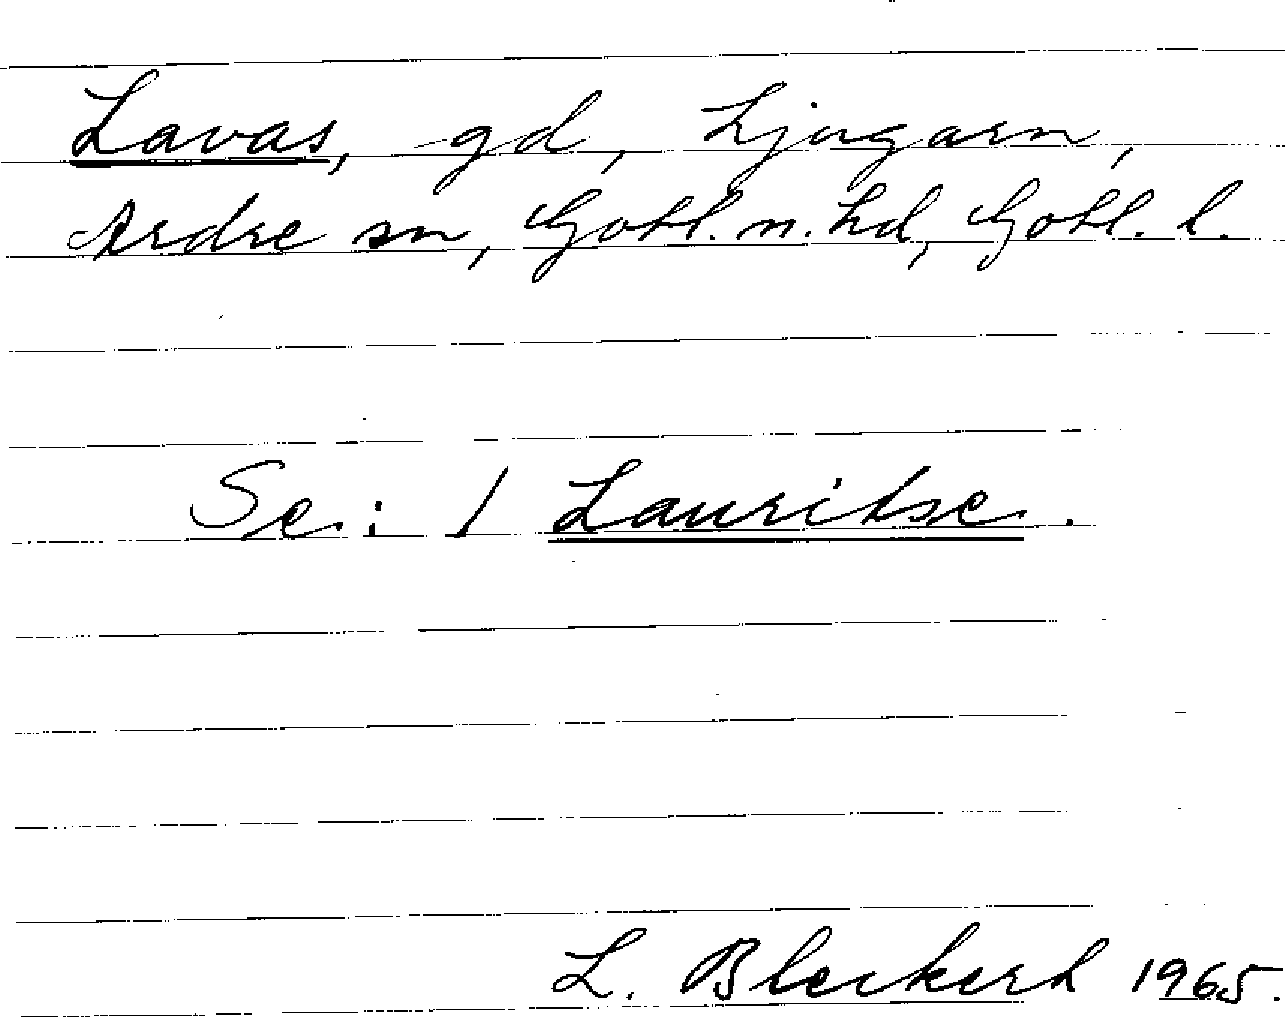 Lavas, gd, Ljugarn,
Ardre sn, Gotl. n. hd, Gotl. l.
Se: / Lauritse.
L. Bleckert 1965.